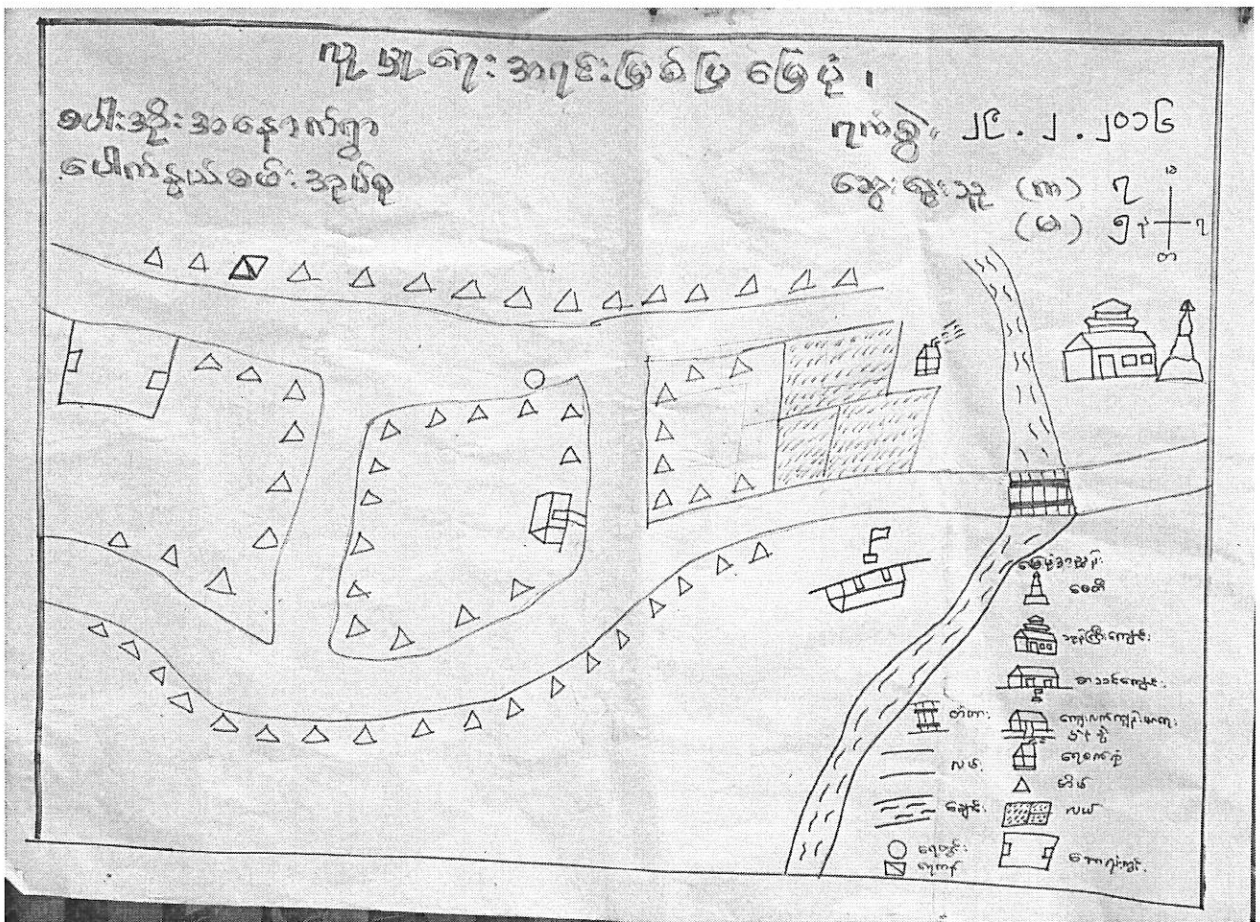 လူမှုရေးအရင်းမြစ်ပြမြေပုံ၊
စပါးအိုးအနောက်ရွာ
ပေါက်နွယ်စမ်းအုပ်စု
ရက်စွဲ၊ ၂၄.၂.၂၀၁၆
ဆွေးနွေးသူ (ကျ) ၇
(မ) ၅
မြေပုံအညွှန်း
စေတီ
ဘုန်းကြီးကျောင်း
စာသင်ကျောင်း
တံတား
ကျေးလက်ကျန်းမာရေး
ရေစက်ရုံ
လမ်း
အိမ်
ချောင်း
လယ်
ရေတွင်း
ရေကန်
ဘောလုံးကွင်း